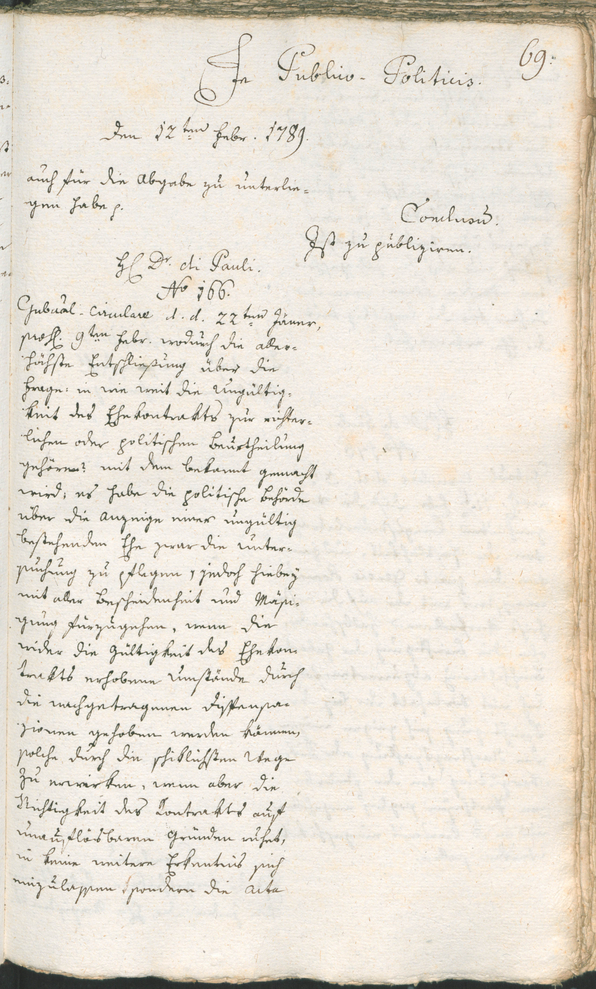 69.
In Publico-Politicis.
Den 12ten Febr. 1789.
auch für die Abgabe zu unterlie-
gen habe p.
Conclusum.
Ist zu publiziren.
H. Dr. di Pauli.
No 166.
Gubũal-Circulare d. d. 22ten Jäner,
9ten Febr. wodurch die aller-
höchste Entschließung über die
Frage: in wie weit die Ungültig-
keit des Ehekontrakts zur richter-
lichen oder politischen Beurtheilung
gehöre? mit dem bekannt gemacht
wird, es habe die politische Behörde
über die Anzeige einer ungültig
bestehenden Ehe zwar die Unter-
suchung zu pflegen, jedoch hiebey
mit aller Bescheidenheit und Mäßi-
gung fürzugehen, wenn die
wider die Gültigkeit des Ehekon
trakts erhobene Umstände durch
die nachgetragenen Dispensa-
zionen gehoben werden können,
solche durch die schiklichsten Wege
zu erwirken, wenn aber die
Nichtigkeit des Kontrakts auf
unauflösbaren Gründen ruhet,
in keine weitere Erkentnis sich
einzulassen, sondern die Acta